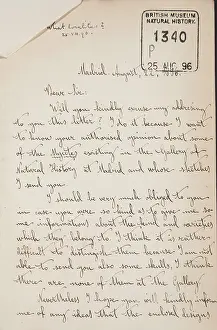 BRITISH MUSEUM
NATURAL HISTORY.
1340
P
25 AUG. 96
Madrid August, 22, 1896.
Dear Sir:
Will you kindly excuse my addressing
to you this letter? I do it because I want
to know your authorised opinion about some
of the existing in the Gallery of
Natural History at Madrid and whose sketches
I send you.
I should be very much obliged to you
in case you were so kind as to give me so-
me informations about the kind and varieties
which they belong to. I think it is rather
difficult to distinguish them because I am not
able to send you also some skulls. I think
there are none of them at the Gallery.
Nevertheless I hope you will kindly inform
me of any ideas that the enclosed designs